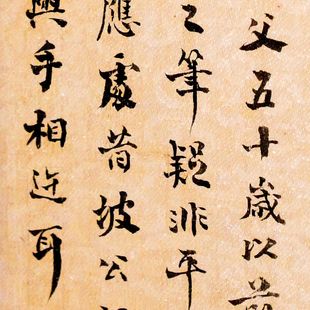 父五十歲以前
之筆疑非平
應處昔坡公
與手相近耳